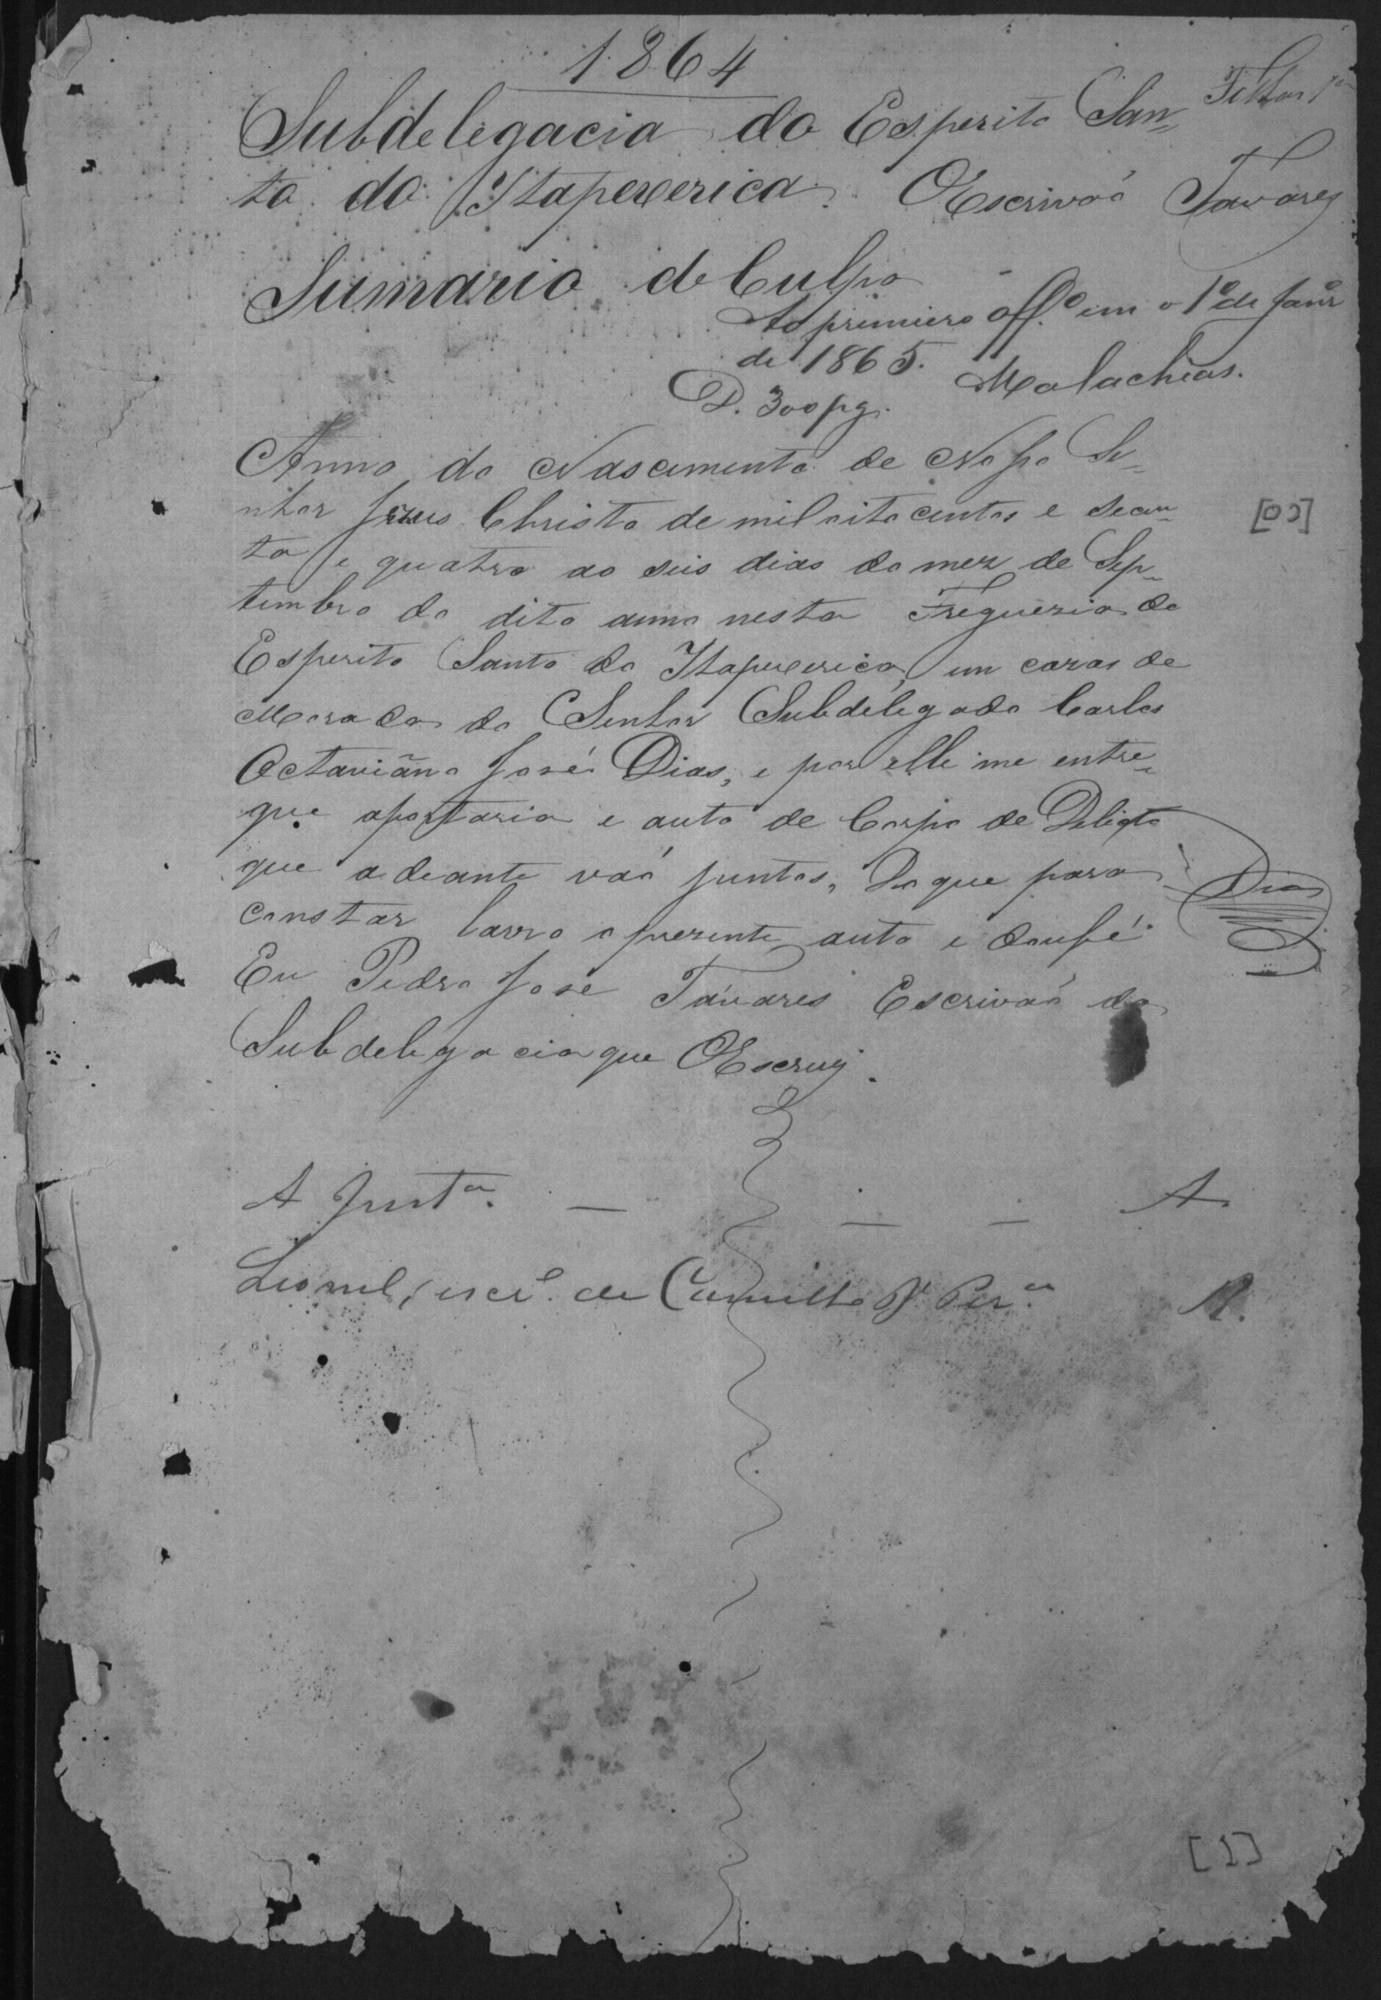 1864
Subdelegacia do Esperito San-
to do Itapexerica. OEscrivaó Tavares
Sumario de Culpa
Ao primeiro off.º em o 1º de Janrº
de 1865. Malachias.
D. 300 pg.
Anno do Nascimento de Nosso Se-
nhor Jezus Christo de mil oito centos e secen-
ta e quatro ao seis dias do mez de Sep-
tembro do dito anno nesta Freguezia do
Esperito Santo do Itapexerica, em cazas de
Morada do Senhor Subdelegado Carlos
Octaviãno José Dias, e por elle me entre-
gue aportaria e auto de Corpo de Delicto
que adeante vaó juntos, Do que para
constar lavro o prezente auto e doufé.
Dias
Eu Pedro Jose Tavares Escrivaó da
Subdelegacia que OEscrevy.
A Justª. — — — A.
Leonel, escr.º de Camillo Jº Per.ª R.
[00]
[1]